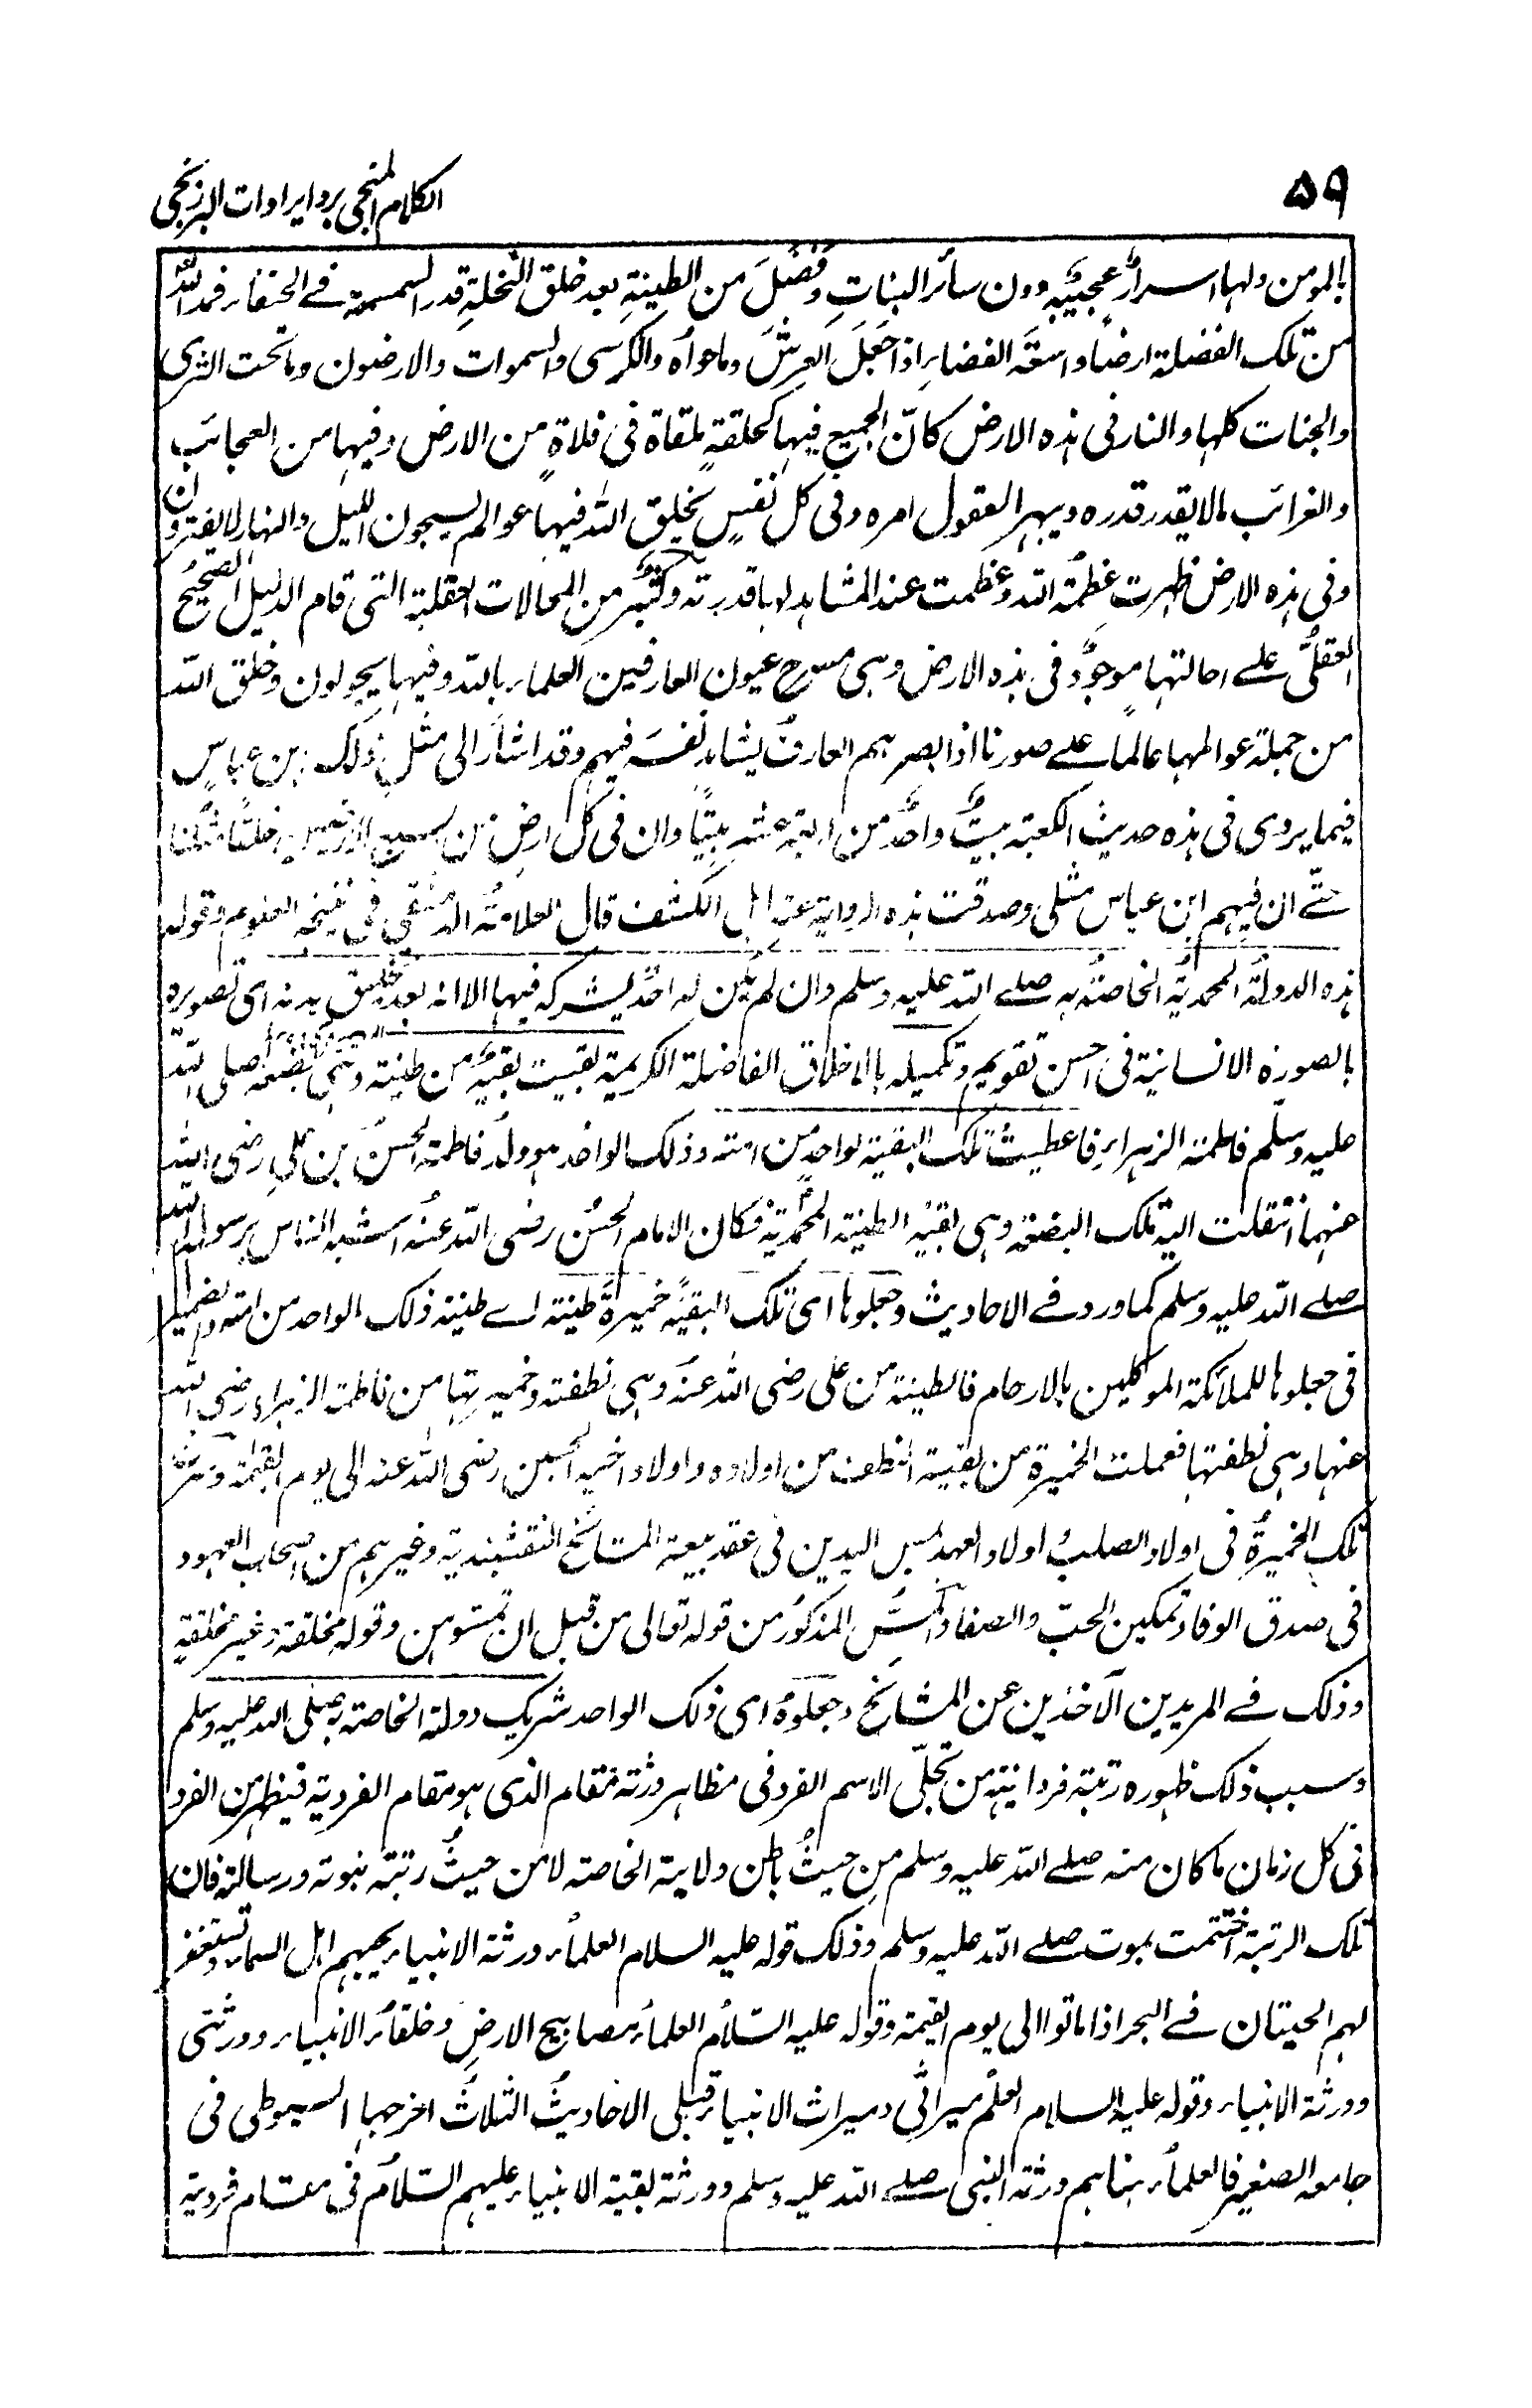 ۵۹
الكلام المنجی برد ایرادات البرزنجی
بالمومن ولها اسرارٌ عجیبیّه دون سائر النباتِ وفُضِّلَ من الطینةِ بعد خلق النخلةِ قدر السمسمة فے الخفاء فمد اللّٰه
من تلك الفضلة ارضاً واسعَة الفضاء اذا جُعِلَ العرشُ وما حواه والكرسی والسموات والارضون وما تحت الثری
والجنات كلها والنار فی هذه الارض كانّ الجمیع فیها كحلقةٍ ملقاة فی فلاةٍ من الارض وفیها من العجائب
والغرائب مالا یقدر قدره ویبهر العقول امره وفی كل نفسٍ یخلق اللّٰه فیها عوالم یسبحون اللیل والنهار لا یفترون
وفی هذه الارض ظهرت عظمة اللّٰه وعظمت عند المشاهد لها قدرته وكثیرٌ من المحالات العقلیة التی قام الدلیل الصحیحُ
العقلیُّ علے احالتها موجودٌ فی هذه الارض وهی مسرح عیون العارفین العلماء باللّٰه وفیها یجولون وخلق اللّٰه
من جملة عوالمها عالماً علے صورنا اذا ابصرهم العارفُ یشاهد نفسَه فیهم وقد اشار الی مثلِ ذلك ابن عباسٍ
فیما یروی فی هذه حدیث الكعبة بیتٌ واحدٌ من اربعة عشر بیتاً وان فی كل ارضٍ من سبع الارضین خلقاً مثلنا
حتّے ان فیهم ابن عباس مثلی وصدقت هذه الروایة عند اهل الكشف قال العلامة الدمشقی فی نفیحة العلوم وقوله
هذه الدولة المحمدیّة الخاصّة به صلے اللّٰه علیه وسلم وان لم یكن له احدٌ یشركه فیها الا انه بعد خلیق بدنه ای تصویره
بالصورة الانسانیة فی احسن تقویم وتكمیله بالاخلاق الفاضلة الكریمة بقیت بقیةٌ من طینة وهی بضعة صلی اللّٰه
علیه وسلّم فاطمة الزهراء فاعطیتُ تلك البقیة لواحدٍ من امته وذلك الواحد هو ولدُ فاطمة الحسنُ بن علی رضی اللّٰه
عنهما انتقلت الیه تلك البضعة وهی بقیة الطینة المحمدیة فكان الامام الحسنُ رضی اللّٰه عنه اشبه الناس برسول اللّٰه
صلے اللّٰه علیه وسلم كما ورد فے الاحادیث وجعلوها ای تلك البقیّة خمیرةً طینة اے طینة ذلك الواحد من امته والضمیر
فی جعلوها للملائكة الموكلین بالارحام فالطینة من علی رضی اللّٰه عنه وهی نطفته وخمیرتها من فاطمة الزهراء رضی اللّٰه
عنها وهی نطفتها فعملت الخمیرة من بقیة النطف من اولاده واولاد اخیه الحسین رضی اللّٰه عنه الی یوم القیمة وسرت
تلك الخمیرةُ فی اولاد الصلب اولاد العهد لمس الیدین فی عقد بیعة المشائخ النقشبندیة وغیرهم من اصحاب العهود
فی صدق الوفا وتمكین الحبّ والصفا والمسّ المذكور من قوله تعالی من قبل ان تمسوهن وقوله مخلقة وغیر مخلقة
وذلك فے المریدین الآخذین عن المشائخ وجعلوهُ ای ذلك الواحد شریك دولة الخاصة به صلی اللّٰه علیه وسلم
وسبب ذلك ظهوره رتبة فردانیة من تجلّی الاسم الفرد فی مظاهر ورثة مقام الذی هو مقام الفردیة فیظهر من الفرد
فی كل زمان ما كان منه صلے اللّٰه علیه وسلم من حیثُ باطن ولایة الخاصة لا من حیثُ رتبة نبوته ورسالة فان
تلك الرتبة اختتمت بموت صلے اللّٰه علیه وسلم وذلك قوله علیه السلام العلماء ورثة الانبیاء یحبهم اهل السماء وتستغفر
لهم الحیتان فے البحر اذا ماتوا الی یوم القیمة وقوله علیه السّلام العلماء مصابیح الارض وخلفاء الانبیاء وورثتی
وورثة الانبیاء وقوله علیه السلام العلم میراثی ومیراث الانبیاء قبلی الاحادیثُ الثلاثُ اخرجها السیوطی فی
جامعه الصغیر فالعلماء هنا هم ورثة النبی صلے اللّٰه علیه وسلم وورثة لبقیة الانبیاء علیهم السّلام فی مقام فردیة